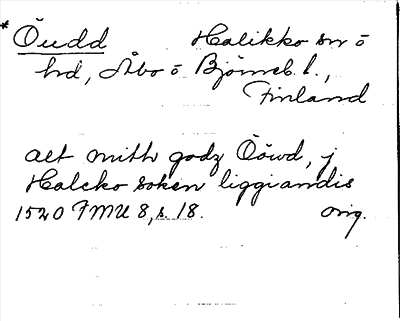 * Öudd Halikko sn o
hd, Åbo o Björneb. l.,
Finland
alt mith godz Öówd, j
Halcko soken liggiandis
1520 FMU 8, s. 18. orig.